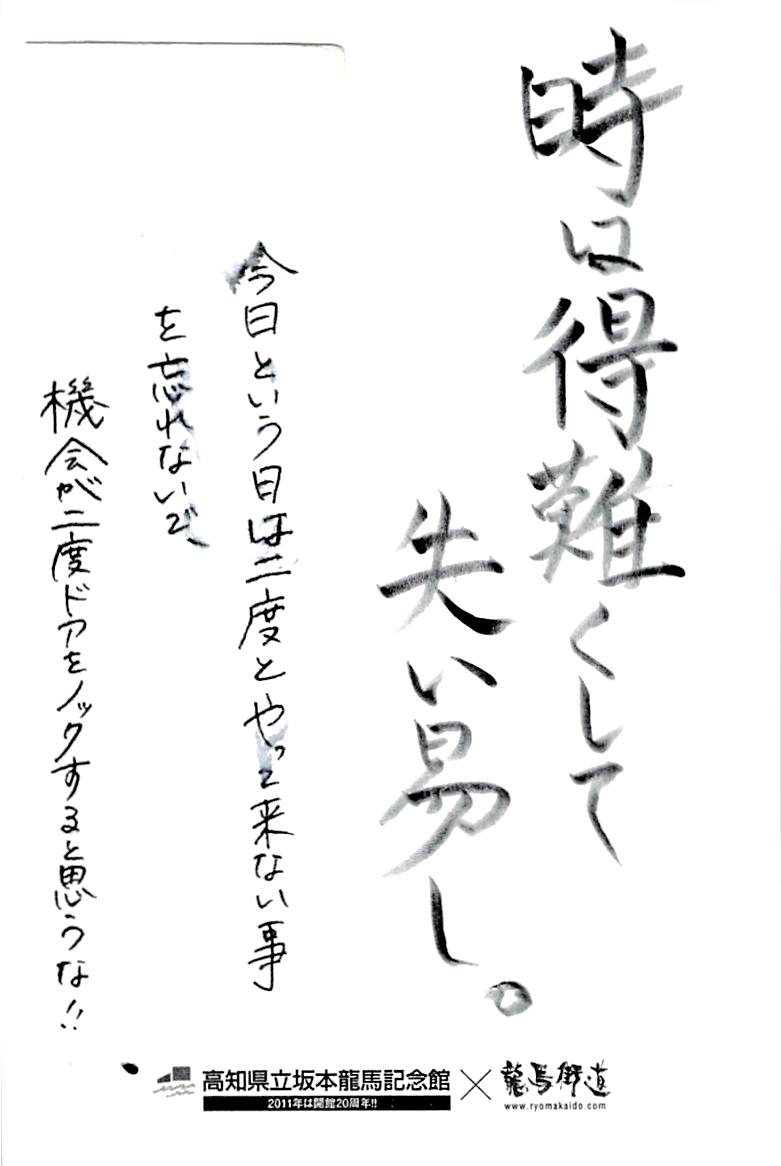 時は得難くして
失い易し。
今日という日は二度とやって来ない事
を忘れないで、
機会が二度ドアをノックすると思うな!!
高知県立坂本龍馬記念館 × 龍馬街道
2011年は開館20周年!!
www.ryomakaido.com